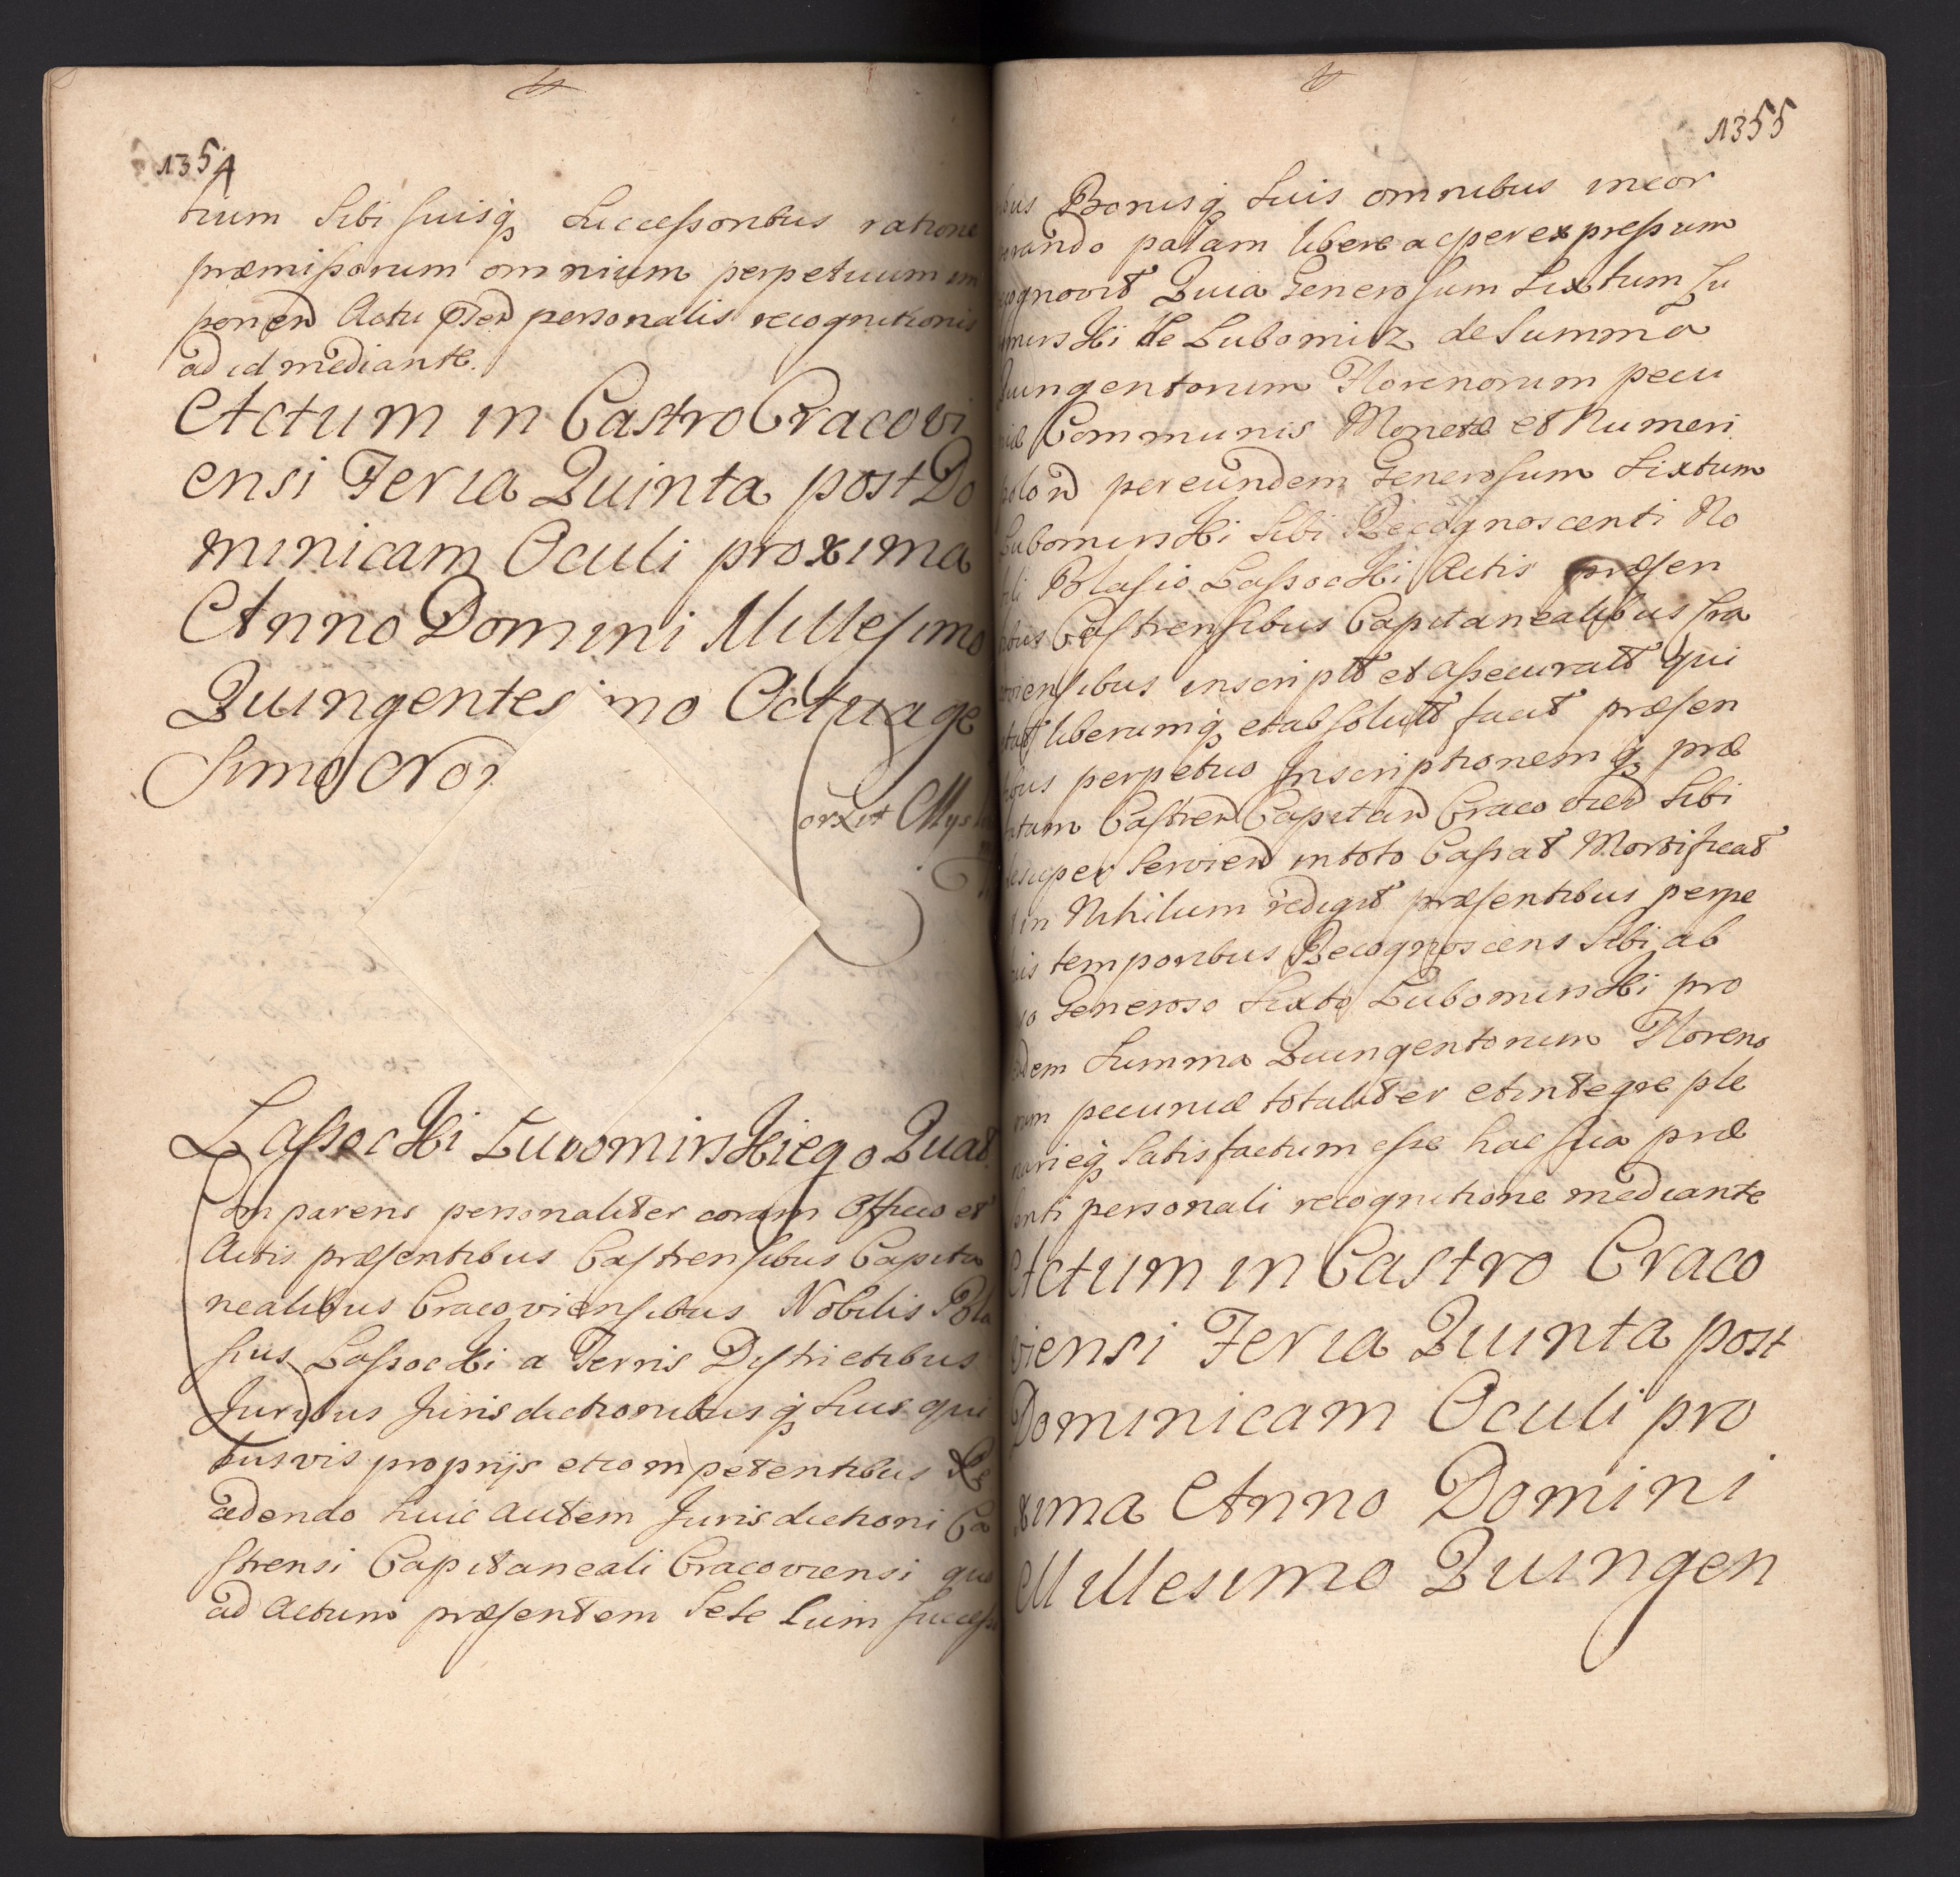 1354
tium Sibi suisq Successoribus ratione
præmissorum omnium perpetuum im
ponen Actu præsen personalis recognitionis
ad id mediante.
Actum in Castro Cracovi
ensi Feria Quinta post Do
minicam Oculi proxima
Anno Domini Millesimo
Quingentesimo Octuage
Simo Non
Lassocki Lubomirskiego Quat
Comparens personaliter coram Officio et
Actis præsentibus Castrensibus Capita
nealibus Cracoviensibus Nobilis Bla
sius Lassocki a Terris Districtibus
Juribus Jurisdictionibusq suis qui
busvis proprijs et competentibus Re
cedendo huic autem Jurisdictioni Ca
strensi Capitaneali Cracoviensi quo
ad Actum præsentem Sese cum successo
1355
bus Bonisq suis omnibus incor
porando palam libere ac per expressum
recognovit Quia Generosum Sixtum Lu
bomirski de Lubomirz de Summa
Quingentorum Florenorum pecu
niæ Communis Monetæ et Numeri
polon per eundem Generosum Sixtum
Lubomirski Sibi Recognoscenti No
bili Blasio Lassocki Actis præsen
tibus Castrensibus Capitanealibus Cra
coviensibus inscript et assecurat qui
etat liberumq et absolut facit præsen
tibus perpetuo Inscriptionemq præ
tatam Castren Capitan Cracovien Sibi
desuper Servien in toto Cassat Mortificat
et in Nihilum redigit præsentibus perpe
tuis temporibus Recognoscens Sibi ab
eo Generoso Sixto Lubomirski pro
eadem Summa Quingentorum Floreno
rum pecuniæ totaliter et integre ple
narieq Satisfactum esse hac sua præ
senti personali recognitione mediante
Actum in Castro Craco
viensi Feria Quinta post
Dominicam Oculi pro
xima Anno Domini
Millesimo Quingen